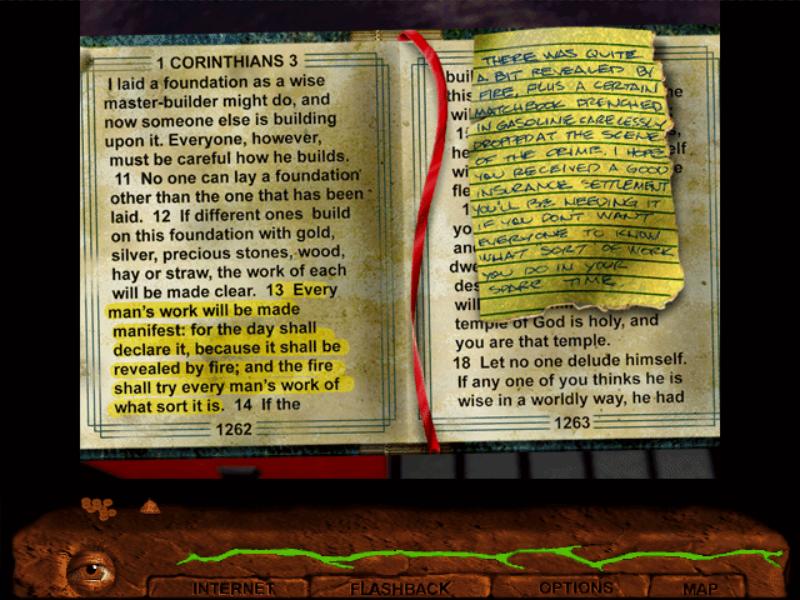 1 CORINTHIANS 3
I laid a foundation as a wise
master-builder might do, and
now someone else is building
upon it. Everyone, however,
must be careful how he builds.
11 No one can lay a foundation
other than the one that has been
laid. 12 If different ones build
on this foundation with gold,
silver, precious stones, wood,
hay or straw, the work of each
will be made clear. 13 Every
man's work will be made
manifest: for the day shall
declare it, because it shall be
revealed by fire; and the fire
shall try every man's work of
what sort it is. 14 If the
1262
THERE WAS QUITE
A BIT REVEALED BY
FIRE, PLUS A CERTAIN
MATCHBOOK DRENCHED
IN GASOLINE CARELESSLY
DROPPED AT THE SCENE
OF THE CRIME. I HOPE
YOU RECEIVED A GOOD
INSURANCE SETTLEMENT
YOU'LL BE NEEDING IT
IF YOU DON'T WANT
EVERYONE TO KNOW
WHAT SORT OF WORK
YOU DO IN YOUR
SPARE TIME
temple of God is holy, and
you are that temple.
18 Let no one delude himself.
If any one of you thinks he is
wise in a worldly way, he had
1263
INTERNET
FLASHBACK
OPTIONS
MAP